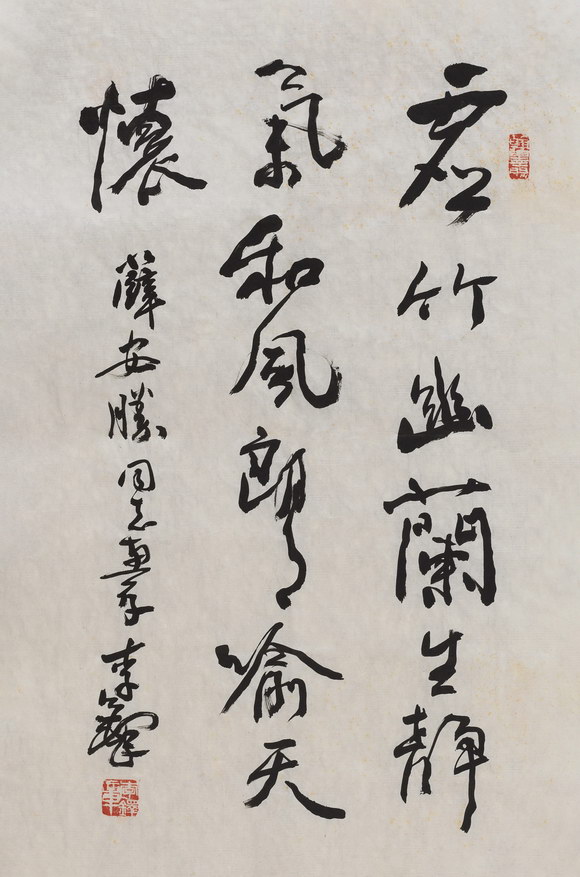 虚竹幽蘭生靜
氣和風朗月喻天
懷
薛安勝同志惠存 李鐸